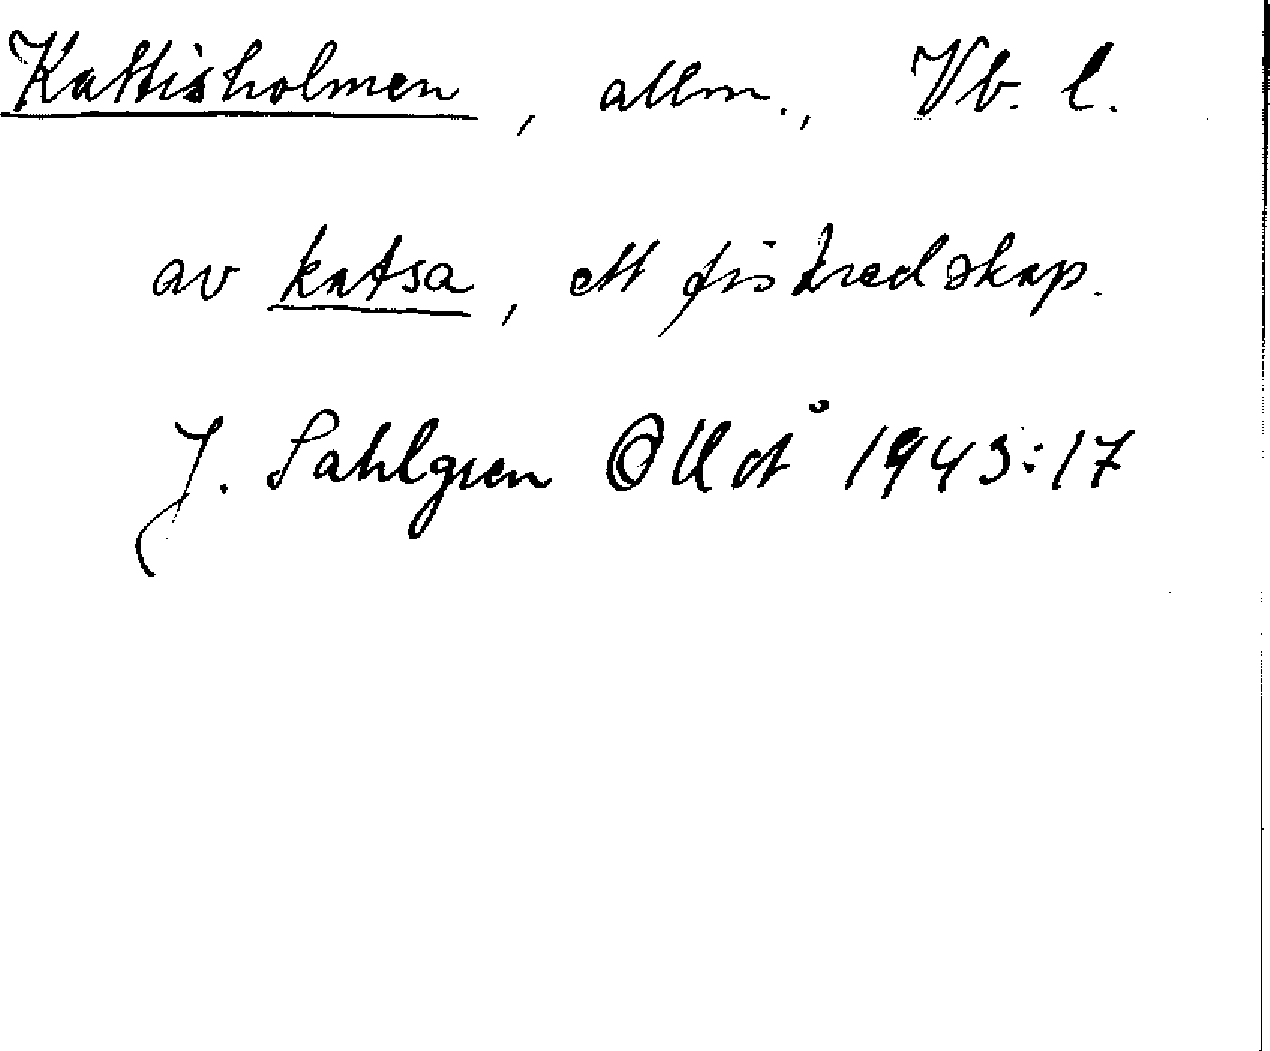 Kattisholmen, allm., Vb. l.
av katsa, ett fiskredskap.
J. Sahlgren 1943:17